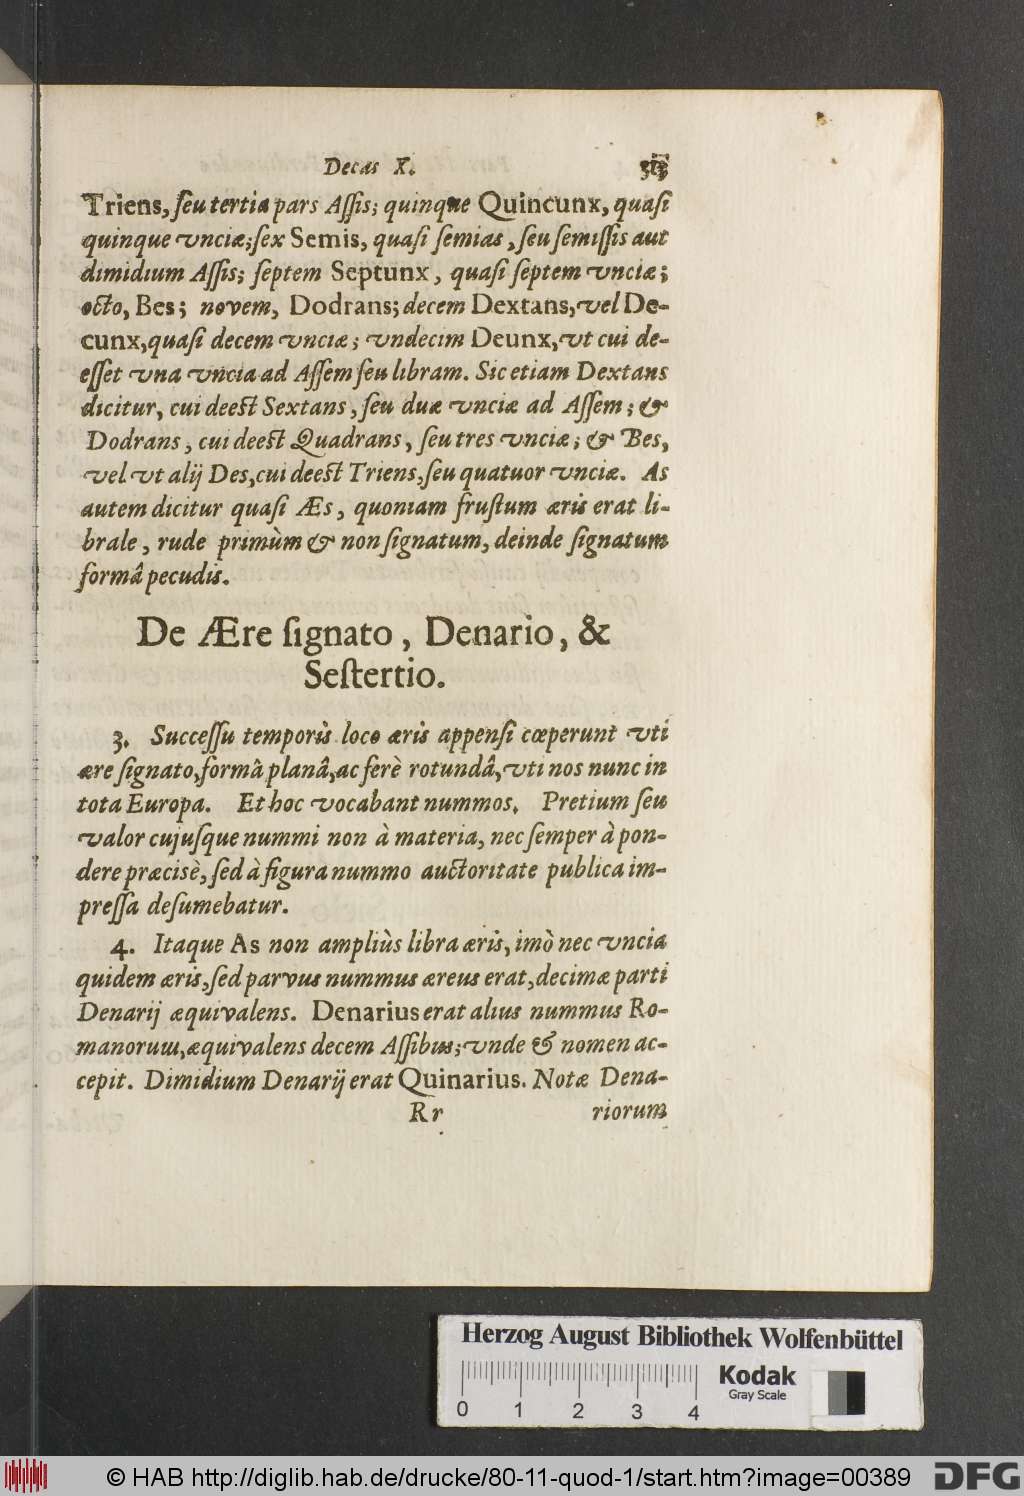 Decas X. 313
Triens, ſeu tertia pars Aſſis; quinque Quincunx, quaſi
quinque vnciæ; ſex Semis, quaſi ſemias, ſeu ſemiſſis aut
dimidium Aſſis; ſeptem Septunx, quaſi ſeptem vnciæ;
octo, Bes; novem, Dodrans; decem Dextans, vel De-
cunx, quaſi decem vnciæ; vndecim Deunx, vt cui de-
eſſet vna vncia ad Aſſem ſeu libram. Sic etiam Dextans
dicitur, cui deeſt Sextans, ſeu duæ vnciæ ad Aſſem; &
Dodrans, cui deeſt Quadrans, ſeu tres vnciæ; & Bes,
vel vt alij Des, cui deeſt Triens, ſeu quatuor vnciæ. As
autem dicitur quaſi Æs, quoniam fruſtum æris erat li-
brale, rude primùm & non ſignatum, deinde ſignatum
formâ pecudis.
De Ære ſignato, Denario, &
Seſtertio.
3. Succeſſu temporis loco æris appenſi cœperunt vti
ære ſignato, formâ planâ, ac ferè rotundâ, vti nos nunc in
tota Europa. Et hoc vocabant nummos. Pretium ſeu
valor cujuſque nummi non à materia, nec ſemper à pon-
dere præcisè, ſed à figura nummo auctoritate publica im-
preſſa deſumebatur.
4. Itaque As non ampliùs libra æris, imò nec vncia
quidem æris, ſed parvus nummus æreus erat, decimæ parti
Denarij æquivalens. Denarius erat alius nummus Ro-
manorum, æquivalens decem Aſſibus; vnde & nomen ac-
cepit. Dimidium Denarij erat Quinarius. Notæ Dena-
Rr riorum
Herzog August Bibliothek Wolfenbüttel
Kodak
Gray Scale
0 1 2 3 4
© HAB http://diglib.hab.de/drucke/80-11-quod-1/start.htm?image=00389 DFG